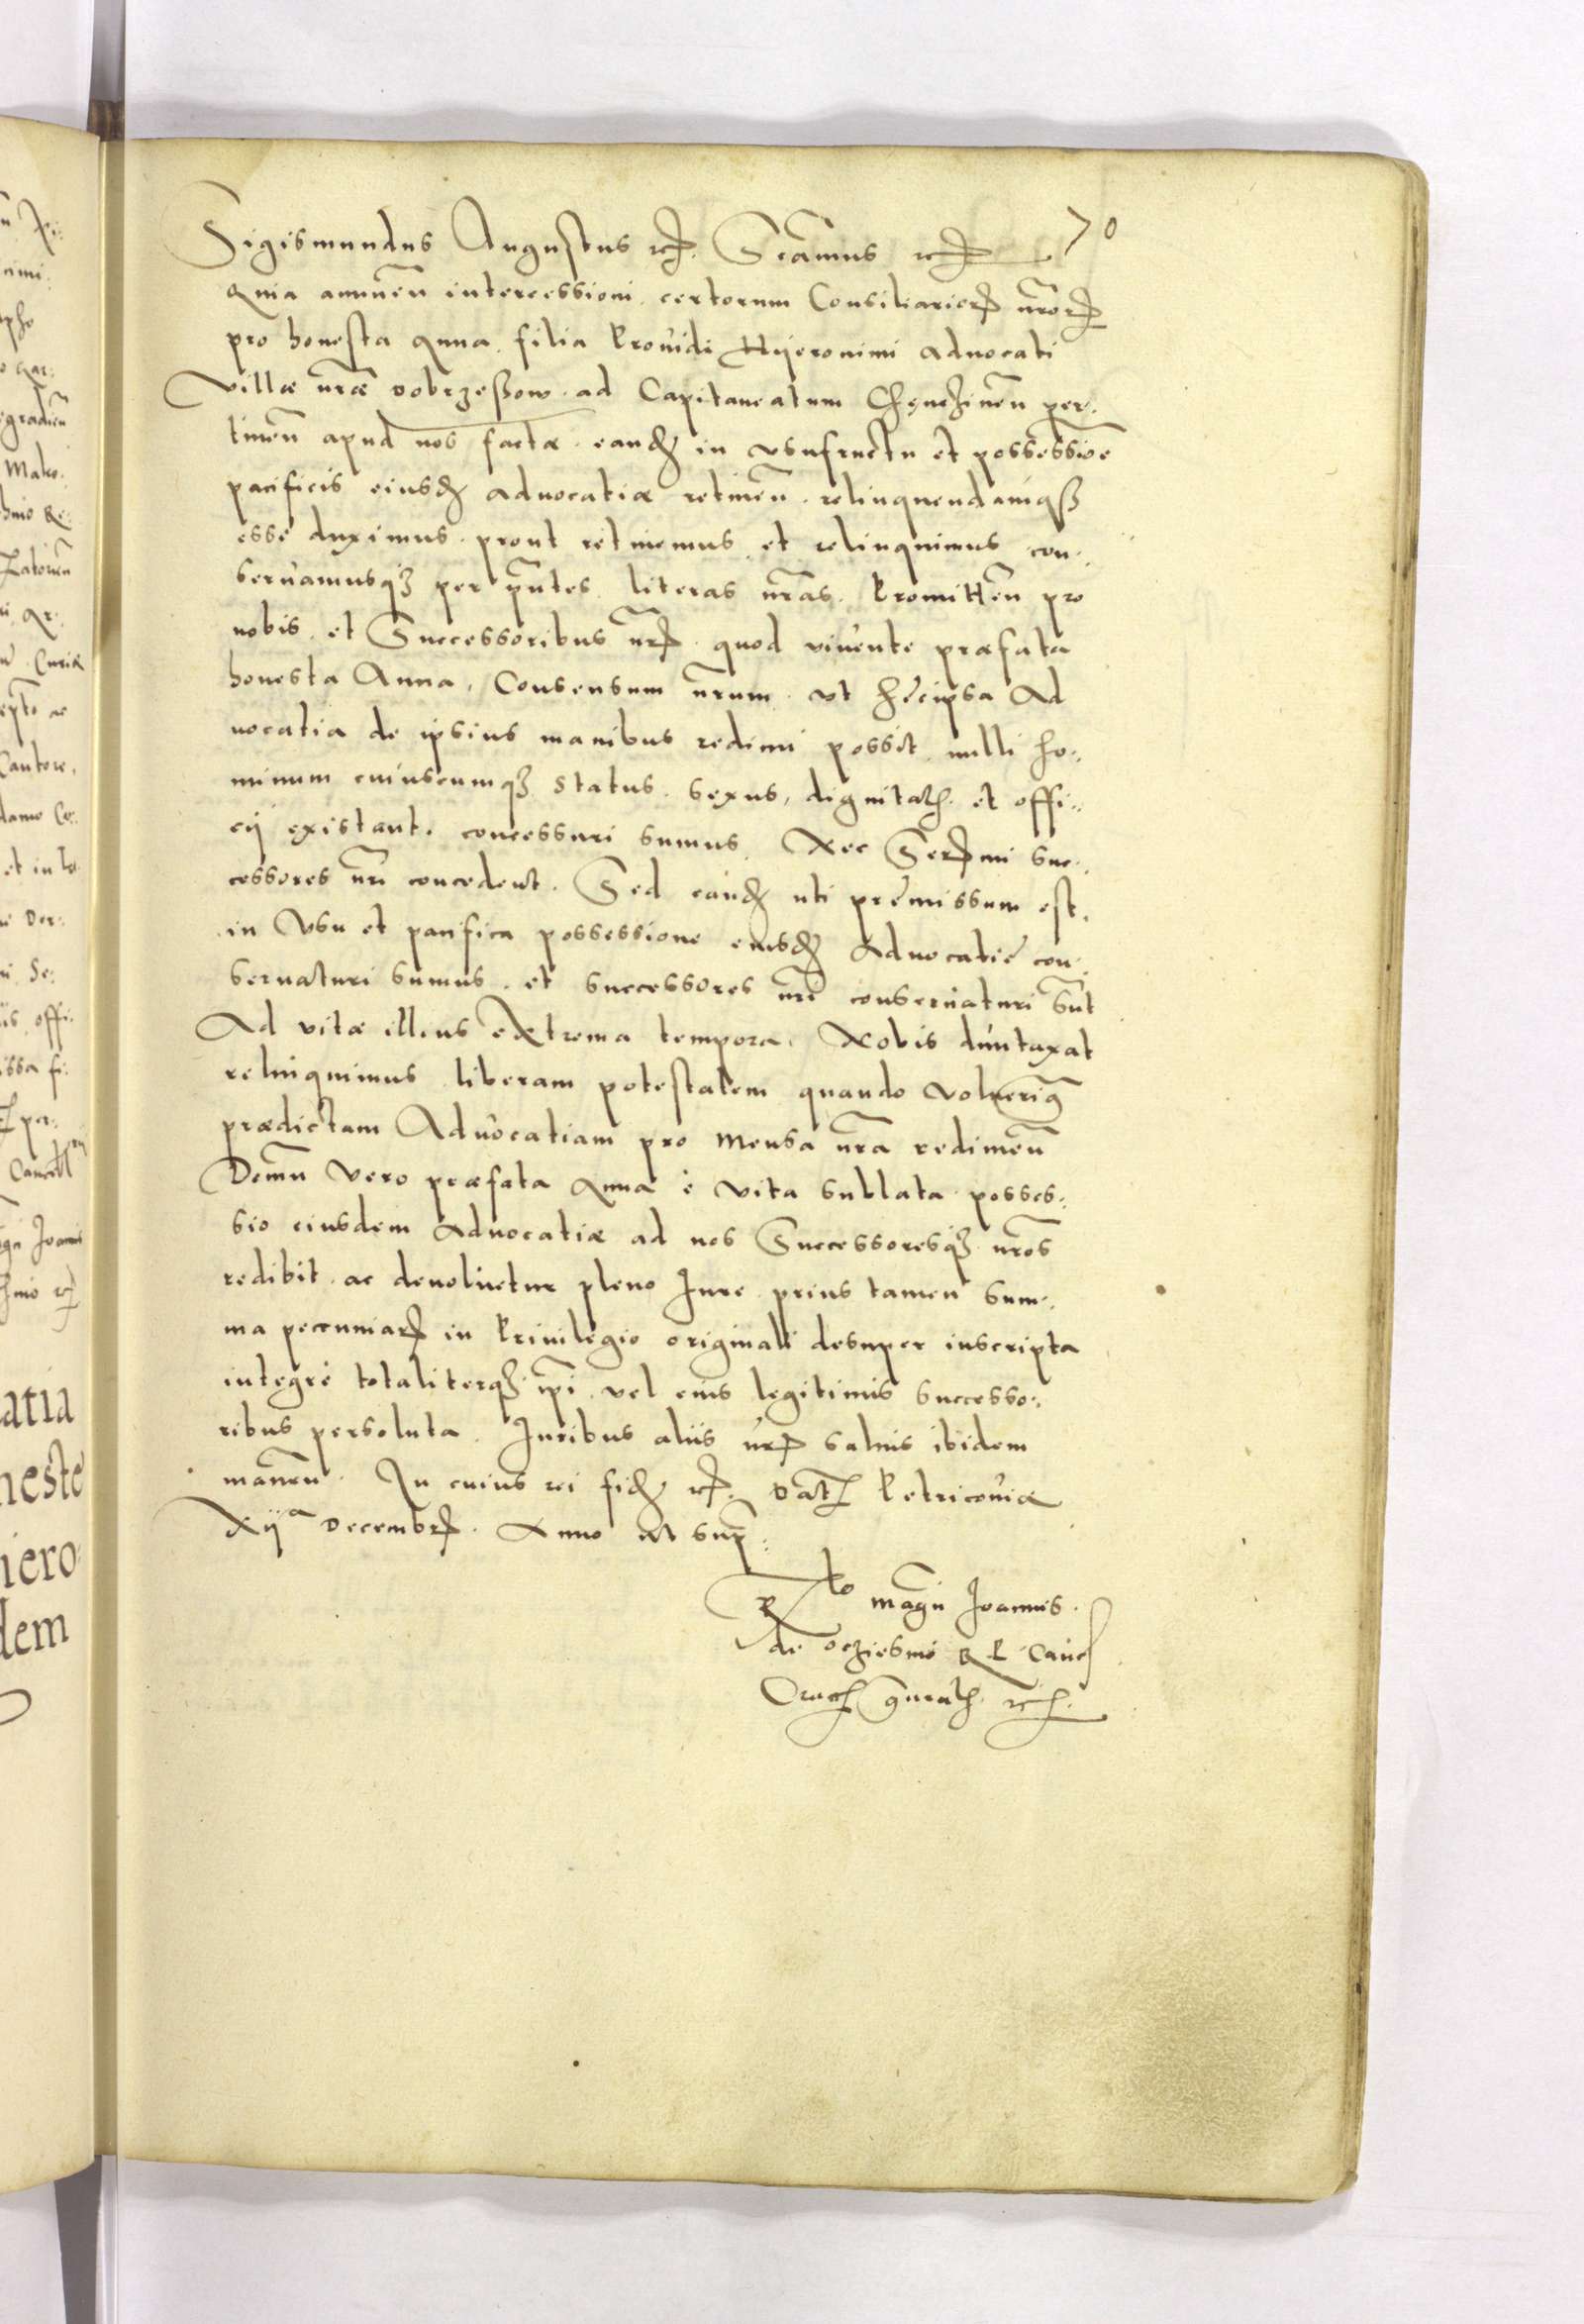 70
Sigismundus Augustus etc. Sĉamus etc.
Quia annuen̄ intercessioni certorum Consiliarior̄ nr̄or̄
pro honesta Anna filia Prouidi Hyeronimi Aduocati
Villæ nr̄æ Dobrzeßow ad Capitaneatum Chęnczinen̄ per:
tinen̄ apud nos factæ eandē in vsufructu et possessioē
pacificis eiusdē aduocatiæ retinen̄ relinquendamqꝫ
esse duximus prout retinemus et relinquimus con:
seruamusqꝫ per pn̄tes literas nr̄as. Promitten̄ pro
nobis et Successoribus nr̄is quod viuente præfata
honesta Anna, Consensum nr̄um vt hęc ipsa Ad
uocatia de ipsius manibus redimi possit nulli ho:
minum cuiuscumqꝫ status sexus, dignitatis et offi:
cij existant. concessuri sumus. Nec Sermi suc:
cessores nr̄i concedent. Sed eandē uti pręmissum est.
in Vsu et pacifica possessione eiusdē Aduocatię con:
seruaturi sumus. et successores nr̄i conseruaturi sūt
Ad vitæ illius extrema tempora. Nobis duntaxat
relinquimus liberam potestatem quando voluerim̄
prædictam Aduocatiam pro mensa nr̄a redimen̄
Demū vero præfata Anna è vita sublata posses:
sio eiusdem Aduocatiæ ad nos Successoresqꝫ nr̄os
redibit ac deuoluetur pleno Iure prius tamen sum:
ma pecuniar̄ in Priuilegio originali desuper inscripta
integrè totaliterqꝫ ip̄i vel eius legitimis successo:
ribus persoluta. Iuribus aliis nr̄is saluis ibidem
manen̄. In cuius rei fidē etc. Dat̄ Petricouiæ
Xijᵃ Decembr̄. Anno ut sup̄:
Rᵗᵒ Mag̃ci Ioannis
de Oczieśino R P Canc̄
Crac̄ gn̄ralis etc.